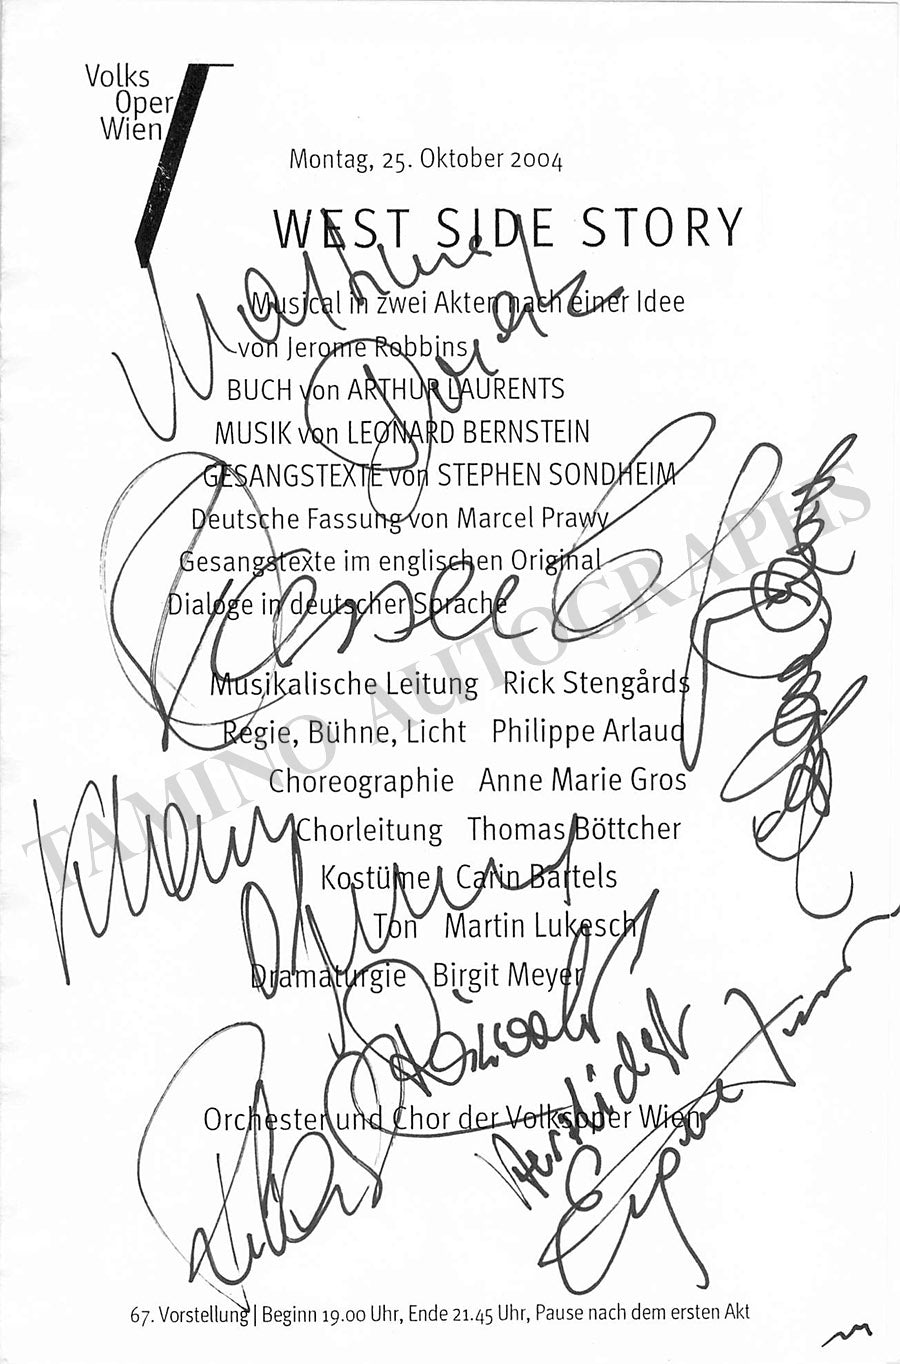 Volks
Oper
Wien
Montag, 25. Oktober 2004
WEST SIDE STORY
Musical in zwei Akten nach einer Idee
von Jerome Robbins
BUCH von ARTHUR LAURENTS
MUSIK von LEONARD BERNSTEIN
GESANGSTEXTE von STEPHEN SONDHEIM
Deutsche Fassung von Marcel Prawy
Gesangstexte im englischen Original
Dialoge in deutscher Sprache
Musikalische Leitung Rick Stengårds
Regie, Bühne, Licht Philippe Arlaud
Choreographie Anne Marie Gros
Chorleitung Thomas Böttcher
Kostüme Carin Bartels
Ton Martin Lukesch
Dramaturgie Birgit Meyer
Orchester und Chor der Volksoper Wien
Martina Dorak
herzlichst
67. Vorstellung | Beginn 19.00 Uhr, Ende 21.45 Uhr, Pause nach dem ersten Akt
TAMINO AUTOGRAPHS